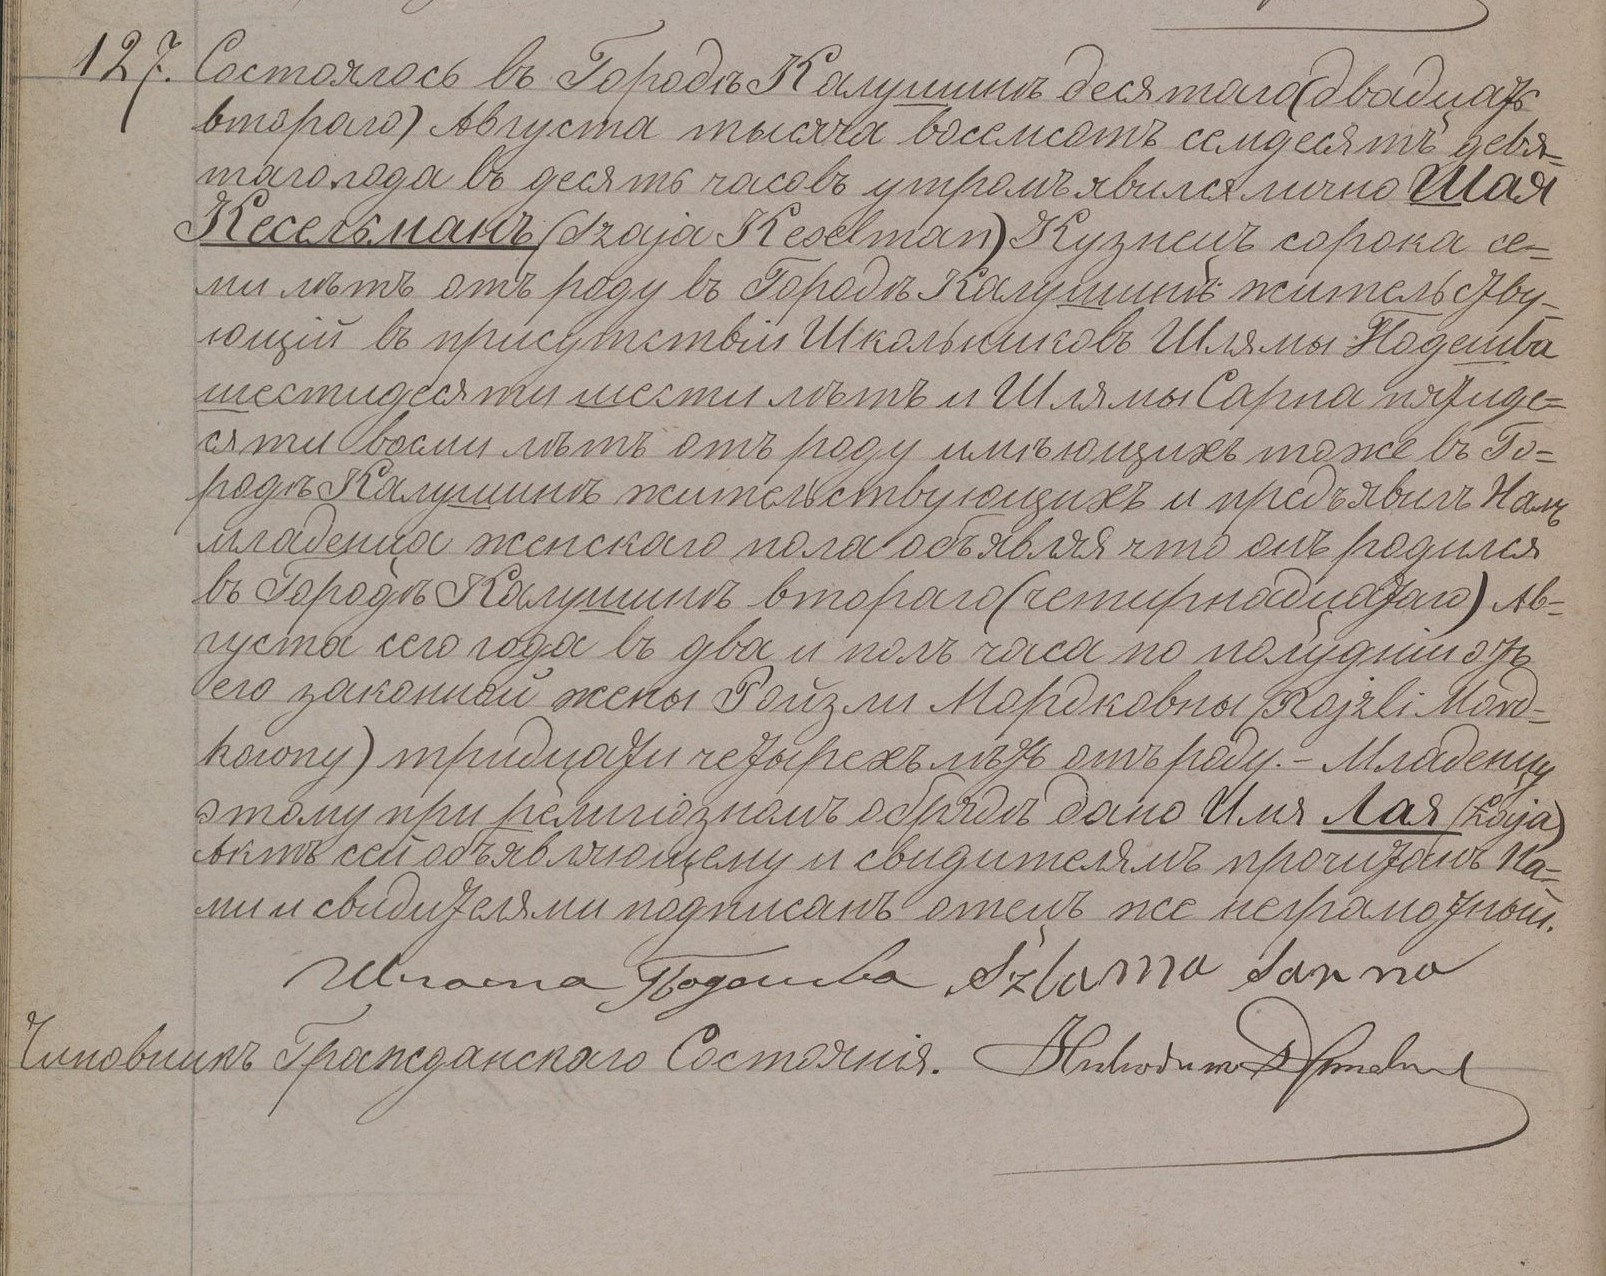 127. Состоялось въ Городѣ Калушинѣ десятаго (двадцать
втораго) Августа тысяча восемсотъ семдесятъ девя=
таго года въ десять часовъ утромъ явился лично Шая
Кесельманъ (Szaja Keselman) Кузнецъ сорока се=
ми лѣтъ отъ роду въ Городѣ Калушинѣ жительству-
ющій въ присутствіи Школьниковъ Шлямы Подешва
шестидесяти шести лѣтъ и Шлямы Сарна пятиде=
сяти восми лѣтъ отъ роду имѣющихъ тоже въ Го=
родѣ Калушинѣ жительствующихъ и предъявилъ Намъ
младенца женскаго пола объявляя что онъ родился
въ Городѣ Калушинѣ втораго (четирнадцатаго) Ав=
густа сего года въ два и полъ часа по полудніи отъ
его законной жены Ройзли Мордковны (Rojzli Mord-
kowny) тридцати четырехъ лѣтъ отъ роду. – Младенцу
этому при религіозномъ обрядѣ дано Имя Лая (Łaja)
Актъ сей объявляющему и свидителямъ прочитанъ На=
ми и свидителями подписанъ отецъ же неграмотный.
Шлама Подошва Szlama Sarna
Чиновникъ Гражданскаго Состоянія.